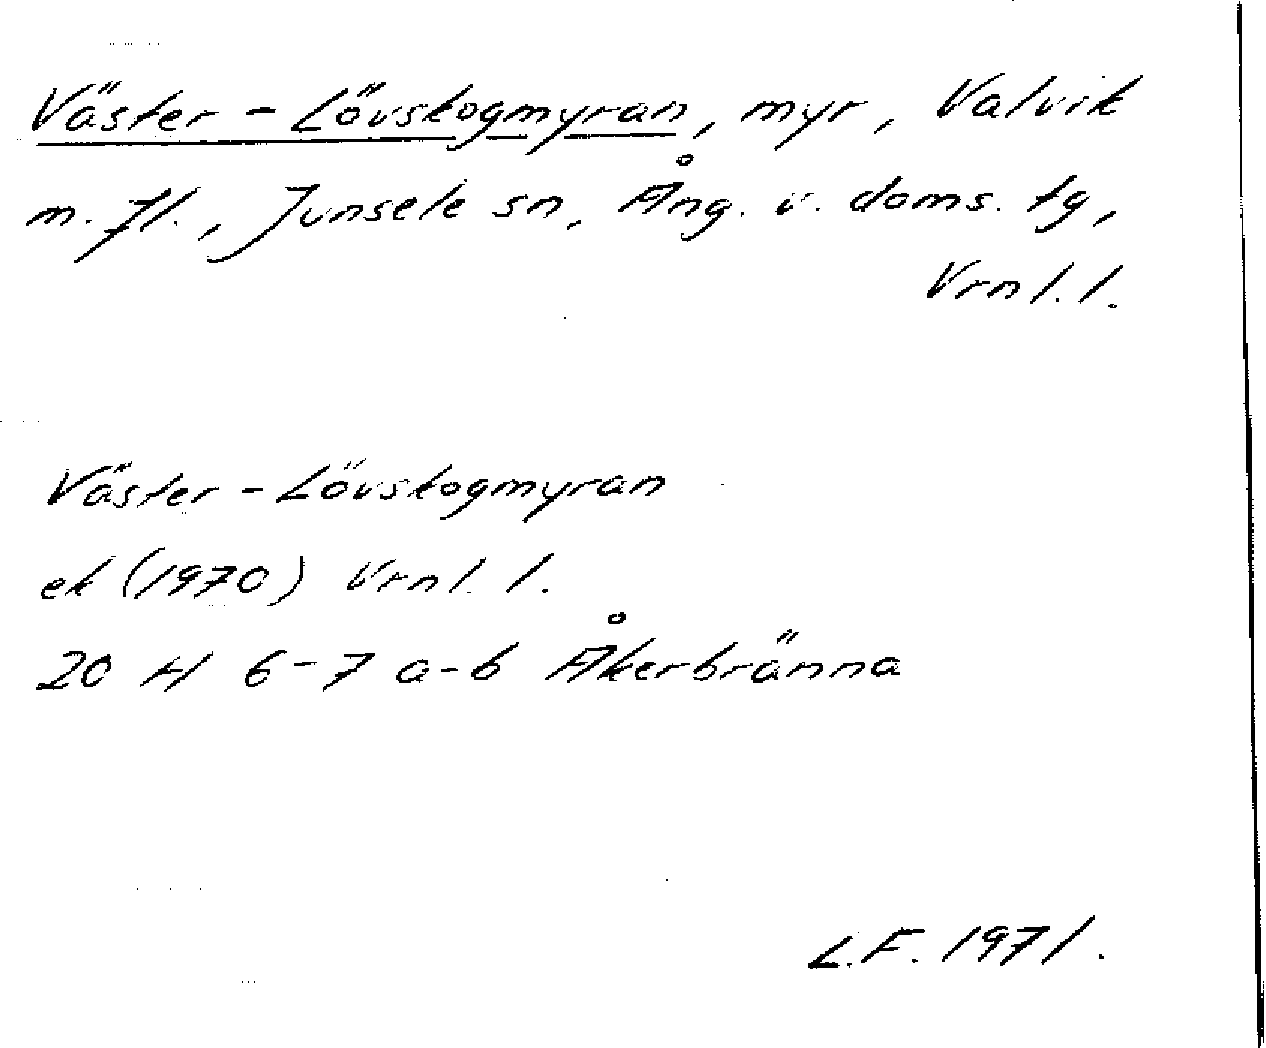 Väster-Lövskogmyran, myr, Valvik
m. fl., Junsele sn, Ång. v. doms. tg,
Vrnl. l.
Väster-Lövskogmyran
ek (1970) Vrnl. l.
20 H 6-7 a-b Åkerbränna
L.F. 1971.